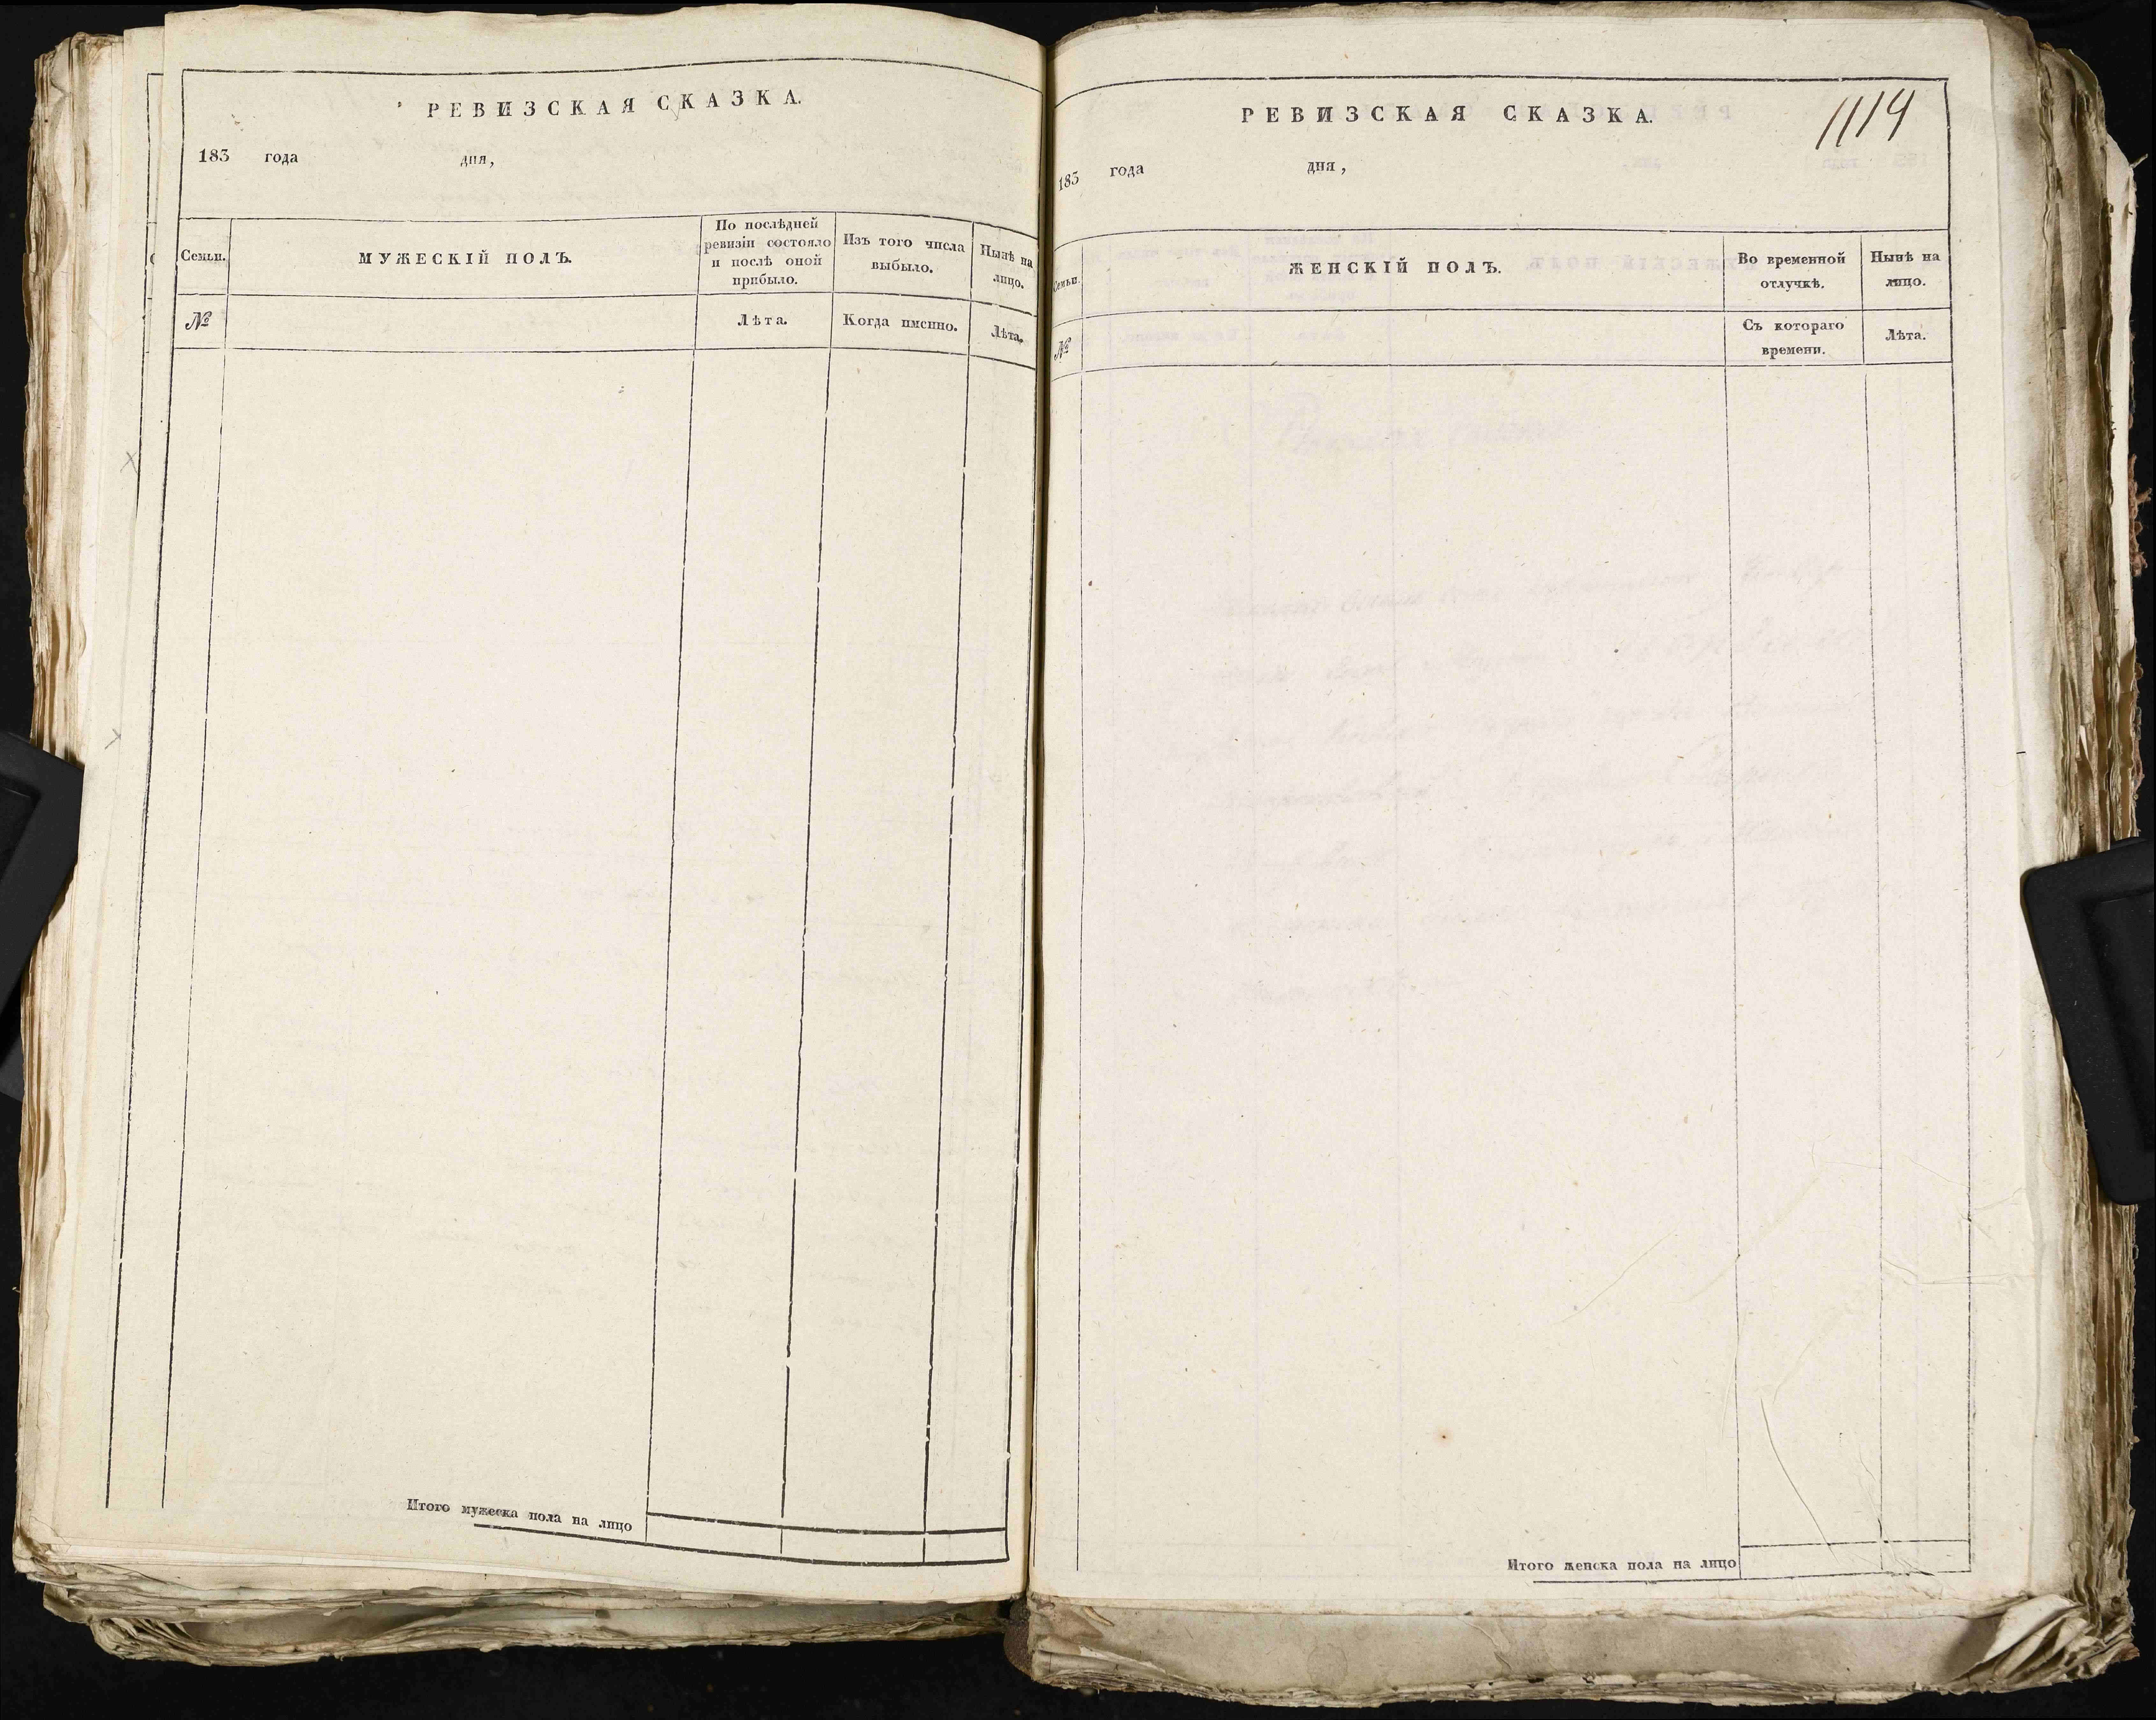 РЕВИЗСКАЯ СКАЗКА.
183 года дня,
Семьи.
МУЖЕСКІЙ ПОЛЪ.
По послѣдней
ревизіи состояло
и послѣ оной
прибыло.
Изъ того числа
выбыло.
Нынѣ на
лицо.
№
Лѣта.
Когда имснно.
Лѣта.
Итого мужеска пола на лицо
РЕВИЗСКАЯ СКАЗКА.
1114
183 года дня,
Семьи.
ЖЕНСКІЙ ПОЛЪ.
Во временной
отлучкѣ.
Нынѣ на
лицо.
№
Съ котораго
времени.
Лѣта.
Итого женска пола на лицо